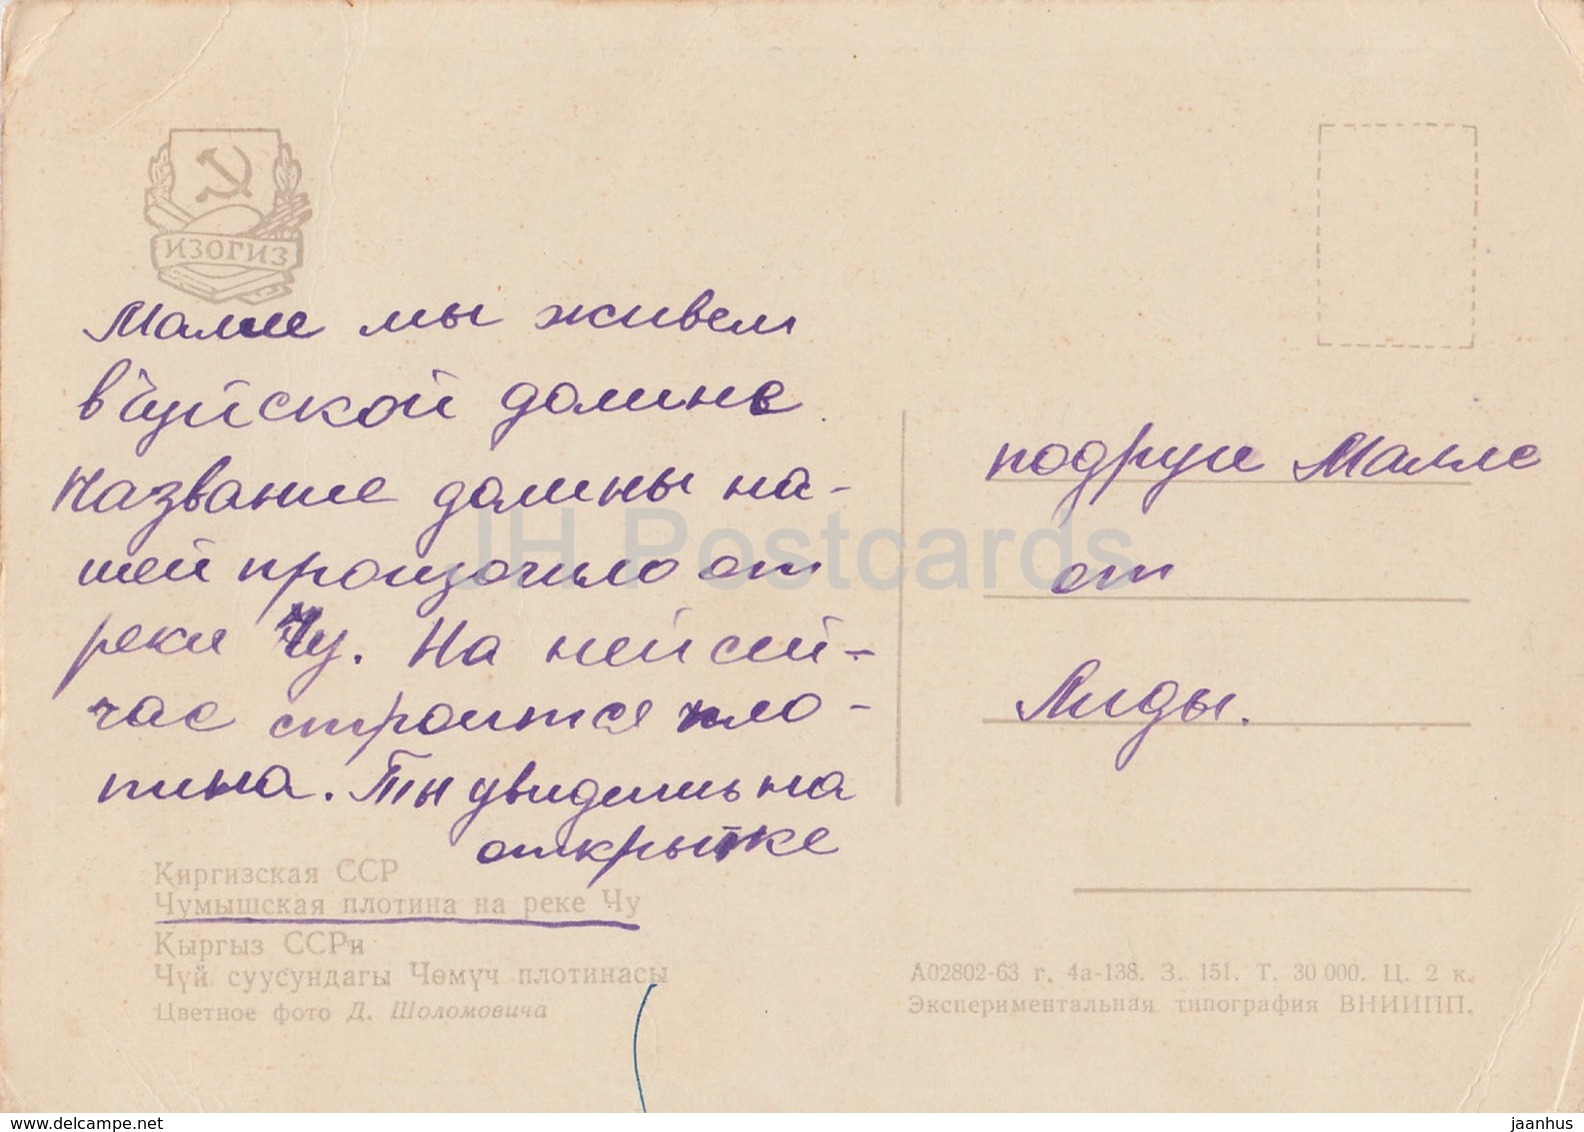 ИЗОГИЗ
Малле мы живем
в Чуйской долине
Название долины на-
шей произошло от
реки Чу. На ней сей-
час строится пло-
тина. Ты увидишь на
открытке
подруги Малле
от
Лиды.
Киргизская ССР
Чумышская плотина на реке Чу
Кыргыз ССРи
Чүй суусундагы Чөмүч плотинасы
Цветное фото Д. Шоломовича
А02802-63 г. 4а-138. З. 151. Т. 30 000. Ц. 2 к.
Экспериментальная типография ВНИИПП.
JH Postcards
www.delcampe.net
jaanhus